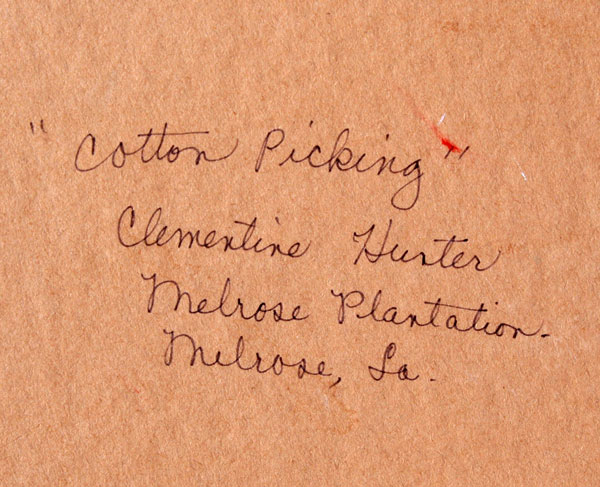 "Cotton Picking"
Clementine Hunter
Melrose Plantation.
Melrose, La.